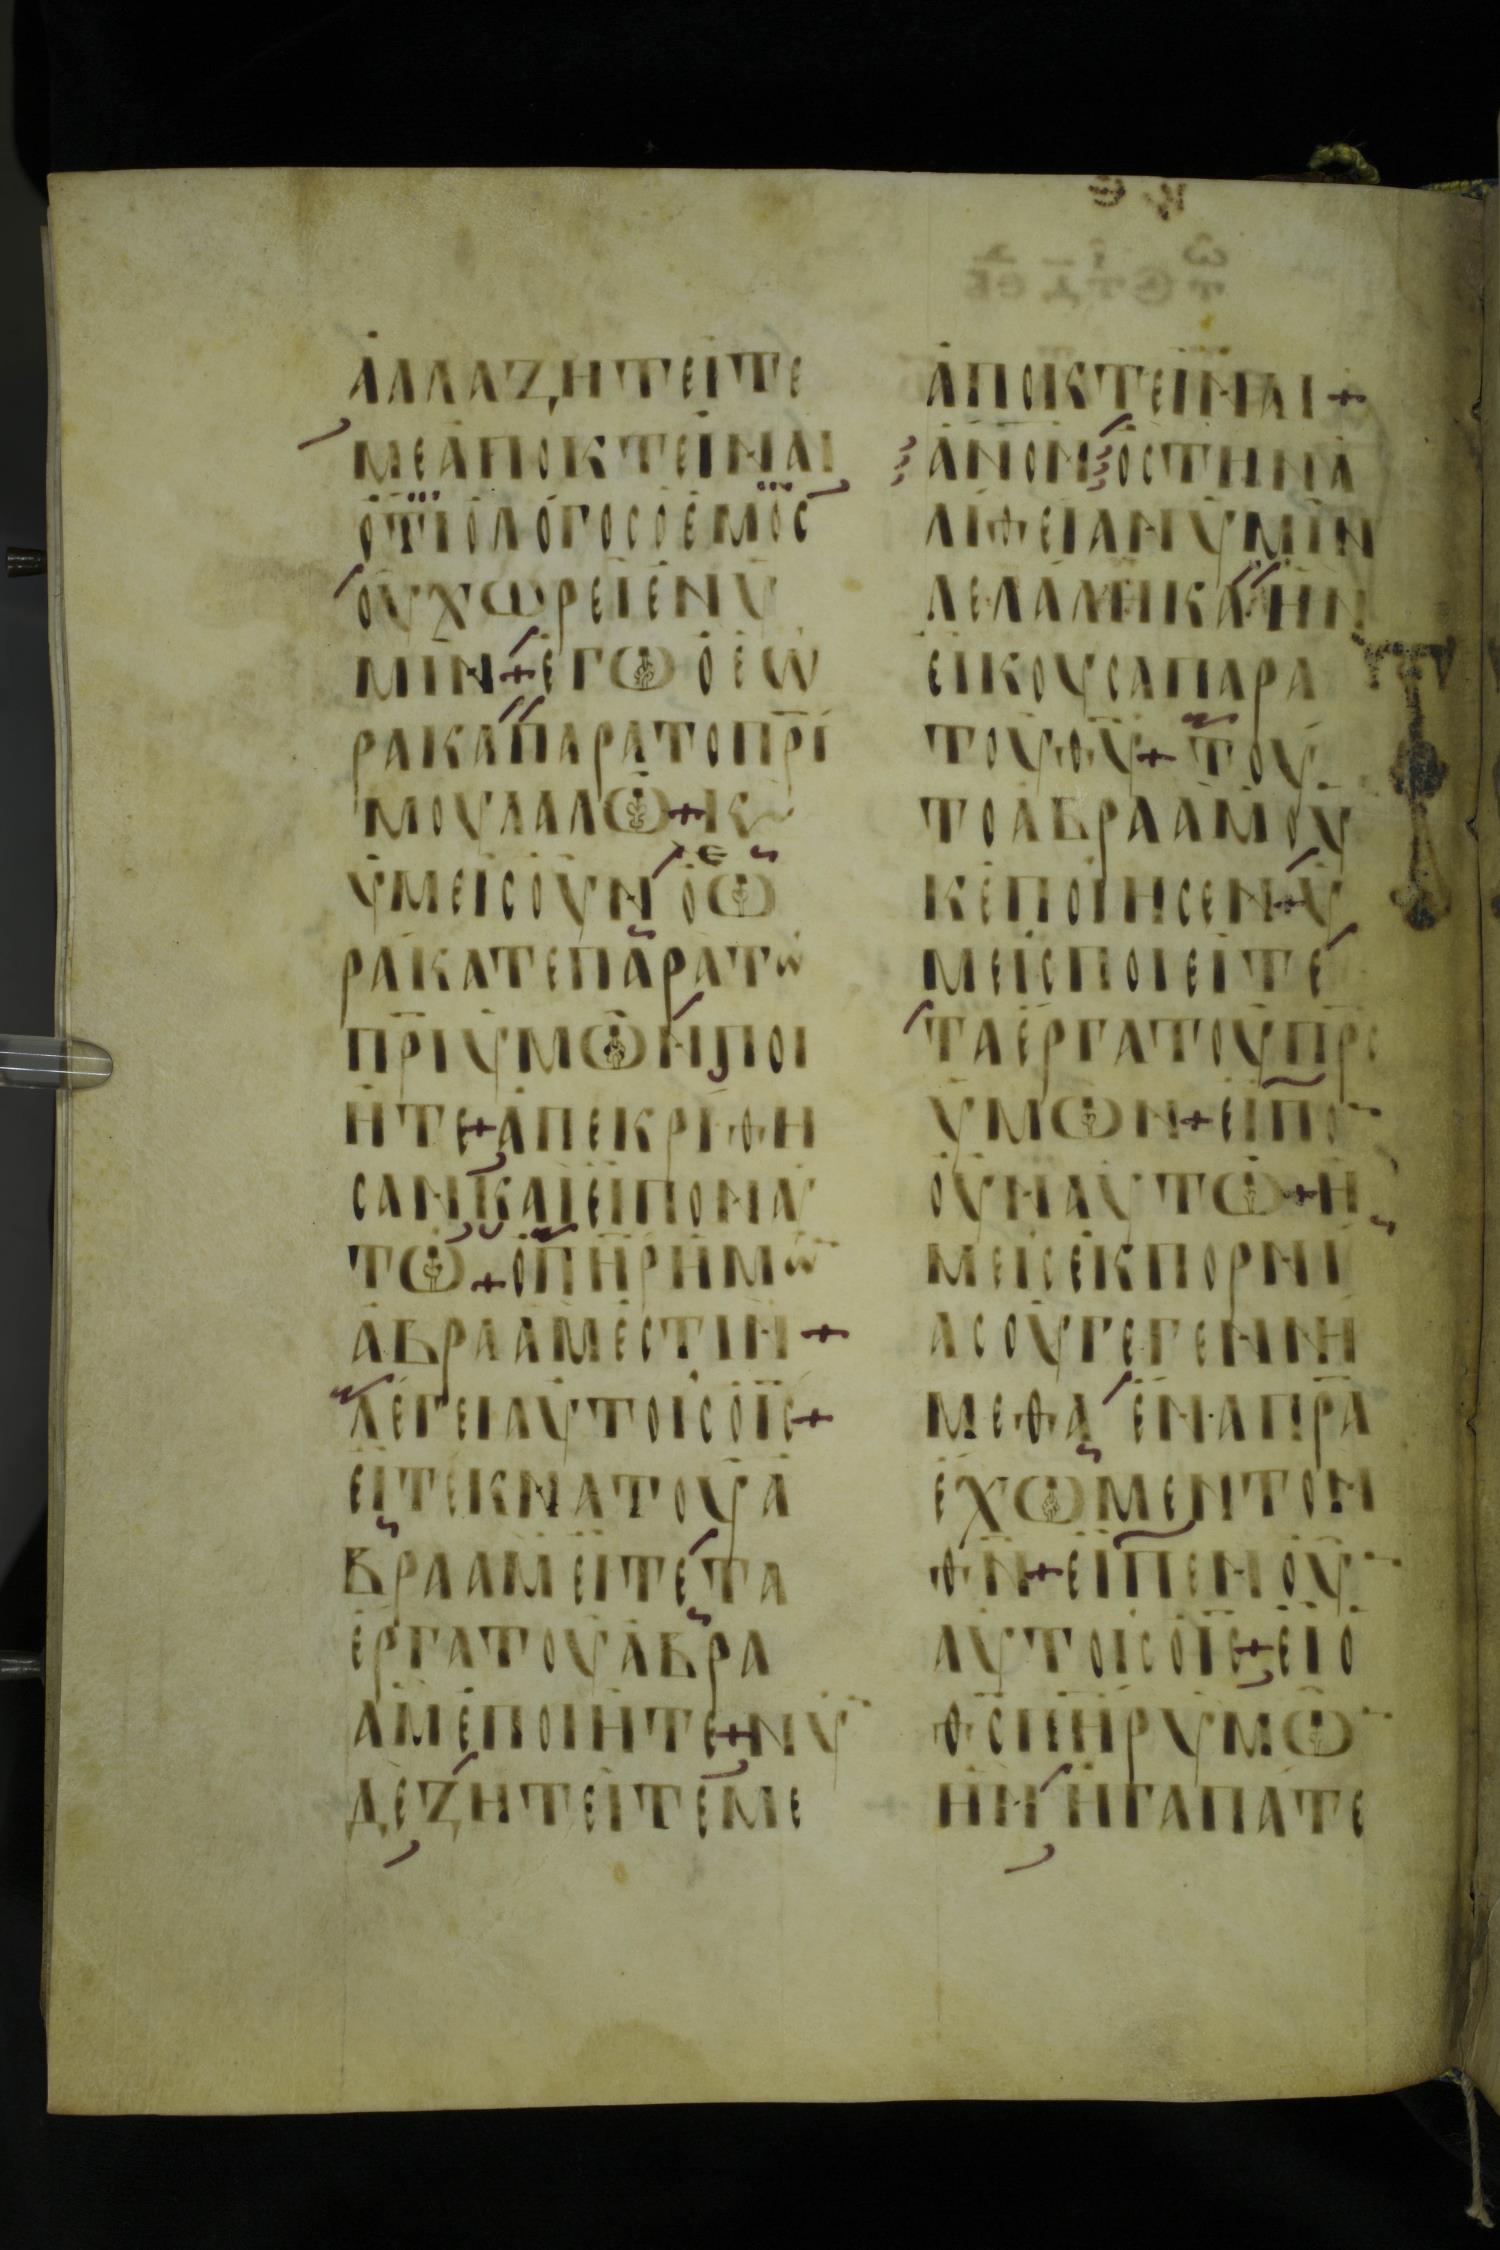 ἀλλαζητεῖτε
μεἀποκτεῖναι
ὅτιὁλόγοςὁἐμὸς
οὐχωρεῖἐνὑ
μῖν+ἐγωὁἑω
ρακαπαρατοπρι
μουλαλῶ+κ
ὑμεῖςοὖνὁω
ράκατεπαρατω
πριὑμῶνποι
ἠτε+ἀπεκρίθη
σανκαὶεἶπονἀυ
τῶ+ὁπηρἡμω
ἀβραάμἐστιν+
λέγειαὐτοῖςὁις+
εἰτέκνατοῦἀ
βραάμεἶτετα
ἔργατοῦἀβρα
ὰμἐποιῆτε+νῦ
δὲζητεῖτέμε
ἀποκτεῖναι+
ἄνονὃςτὴνἀ
λίθειανὑμῖν
λελάληκαἣν
εἴκουσαπαρα
τοῦθυ+τοῦ
τοἀβραὰμοὐ
κἐποίησεν+ὑ
μεῖςποιεῖτε
ταἔργατοῦπρς
ὑμῶν+εἶπο
οὖναὐτῶ+ἡ
μεῖςἐκπορνί
ασοὐγεγεννή
μεθαἕναπρα
ἔχωμεντον
θν+εἶπενοὖ
αὐτοῖςὁις+εἰὁ
θςπηρὑμῶ
ἦνἠγαπᾶτε